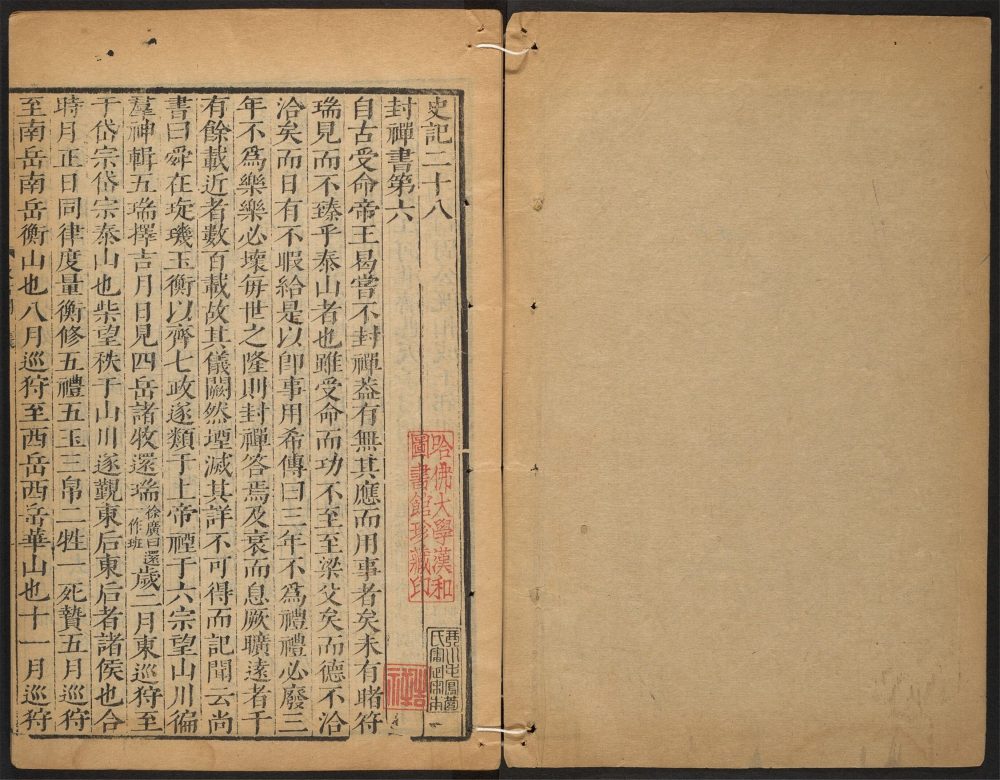 史記二十八
封禪書第六
自古受命帝王曷嘗不封禪葢有無其應而用事者矣未有睹符
瑞見而不臻乎泰山者也雖受命而功不至至梁父矣而德不洽
洽矣而日有不暇給是以卽事用希傳曰三年不爲禮禮必廢三
年不爲樂樂必壞每世之隆則封禪答焉及衰而息厥曠遠者千
有餘載近者數百載故其儀闕然堙滅其詳不可得而記聞云尚
書曰舜在琁璣玉衡以齊七政遂類于上帝禋于六宗望山川徧
羣神輯五瑞擇吉月日見四岳諸牧還瑞徐廣曰還一作班歲二月東巡狩至
于岱宗岱宗泰山也柴望秩于山川遂覲東后東后者諸侯也合
時月正日同律度量衡修五禮五玉三帛二牲一死贄五月巡狩
至南岳南岳衡山也八月巡狩至西岳西岳華山也十一月巡狩
哈佛大學漢和
圖書館珍藏印